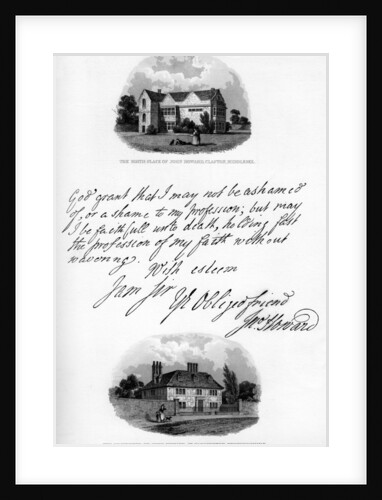 THE BIRTH-PLACE OF JOHN HOWARD, CLAPTON, MIDDLESEX.
God grant that I may not be ashamed
of, or a shame to my profession; but may
I be faithfull unto death, holding fast
the profession of my faith without
wavering.
With esteem
I am Sir
Yr Obliged friend
Jno Howard